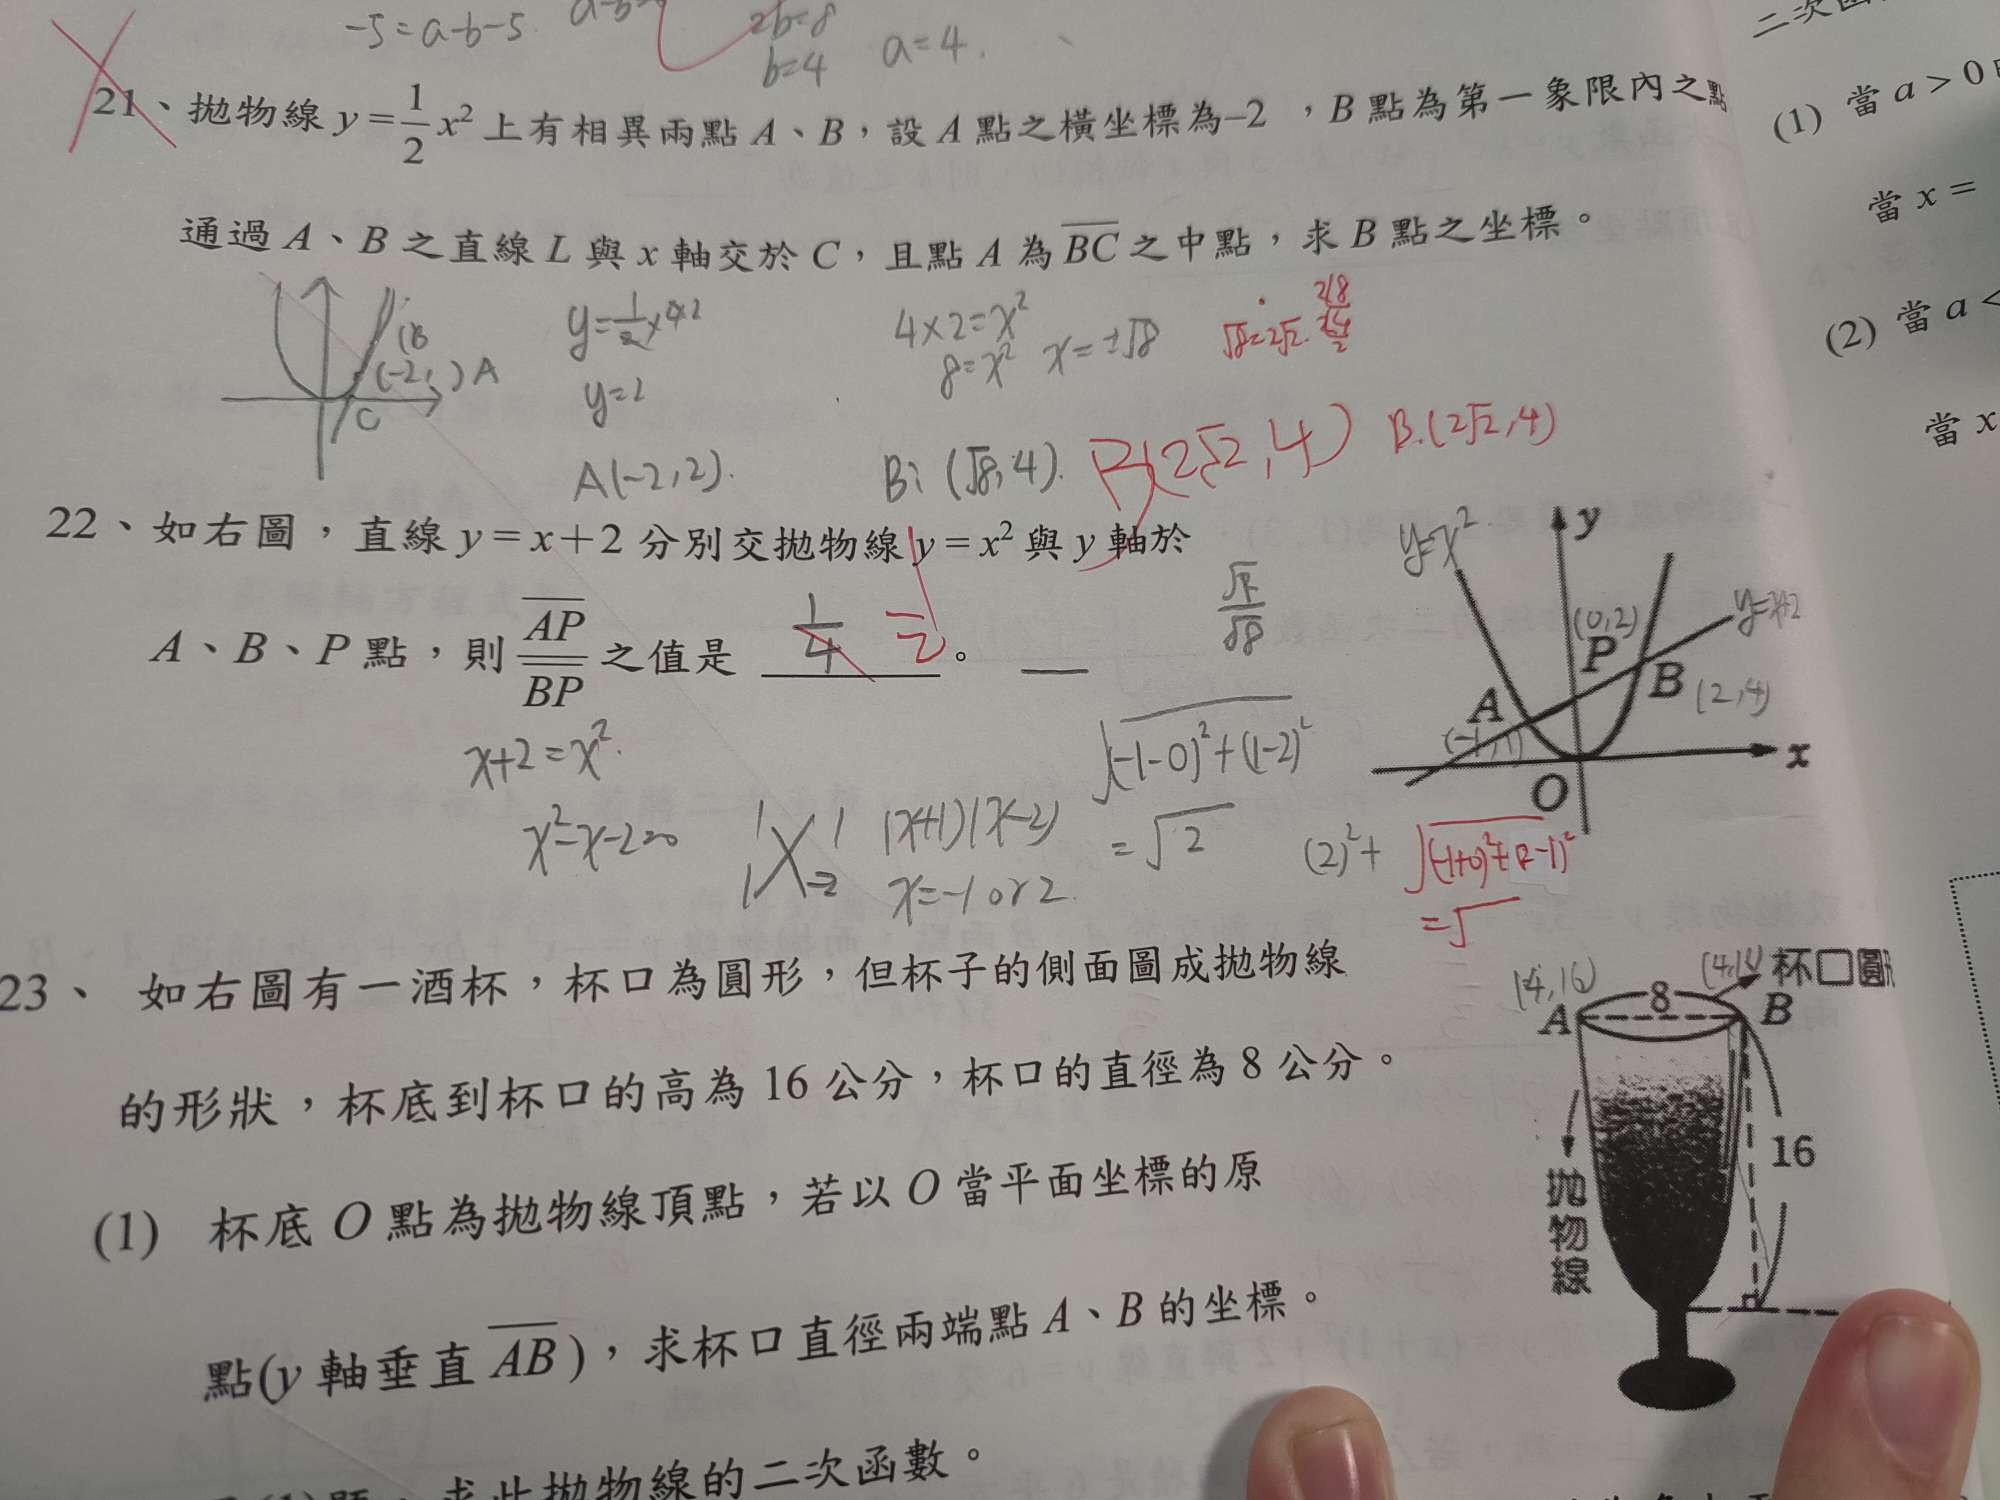 -5=a-b-5
2b=8
b=4 a=4.
21、拋物線 y=1/2 x² 上有相異兩點 A、B，設 A 點之橫坐標為–2 ，B 點為第一象限內之點
通過 A、B 之直線 L 與 x 軸交於 C，且點 A 為 BC 之中點，求 B 點之坐標。
B
(-2, ) A
C
y=1/2×4×2
y=2
A(-2,2).
4×2=x²
8=x² x=±√8
B: (√8,4).
√8=2√2.
B(2√2,4) B.(2√2,4)
22、如右圖，直線 y=x+2 分別交拋物線 y=x² 與 y 軸於
A、B、P 點，則 AP/BP 之值是 1/4 。
x+2=x².
x²-x-2=0
1 1
1 -2
(x+1)(x-2)
x=-1 or 2.
√(-1-0)²+(1-2)²
=√2
(2)²+
√(-1+0)²+(2-1)²
=√
y=x²
y
(0,2)
P
y=x+2
A
(-1,1)
B
(2,4)
O
x
23、 如右圖有一酒杯，杯口為圓形，但杯子的側面圖成拋物線
的形狀，杯底到杯口的高為 16 公分，杯口的直徑為 8 公分。
(1) 杯底 O 點為拋物線頂點，若以 O 當平面坐標的原
點(y 軸垂直 AB)，求杯口直徑兩端點 A、B 的坐標。
求此拋物線的二次函數。
杯口圓形
A
8
B
16
拋物線
(1) 當 a > 0
當 x =
(2) 當 a <
當 x